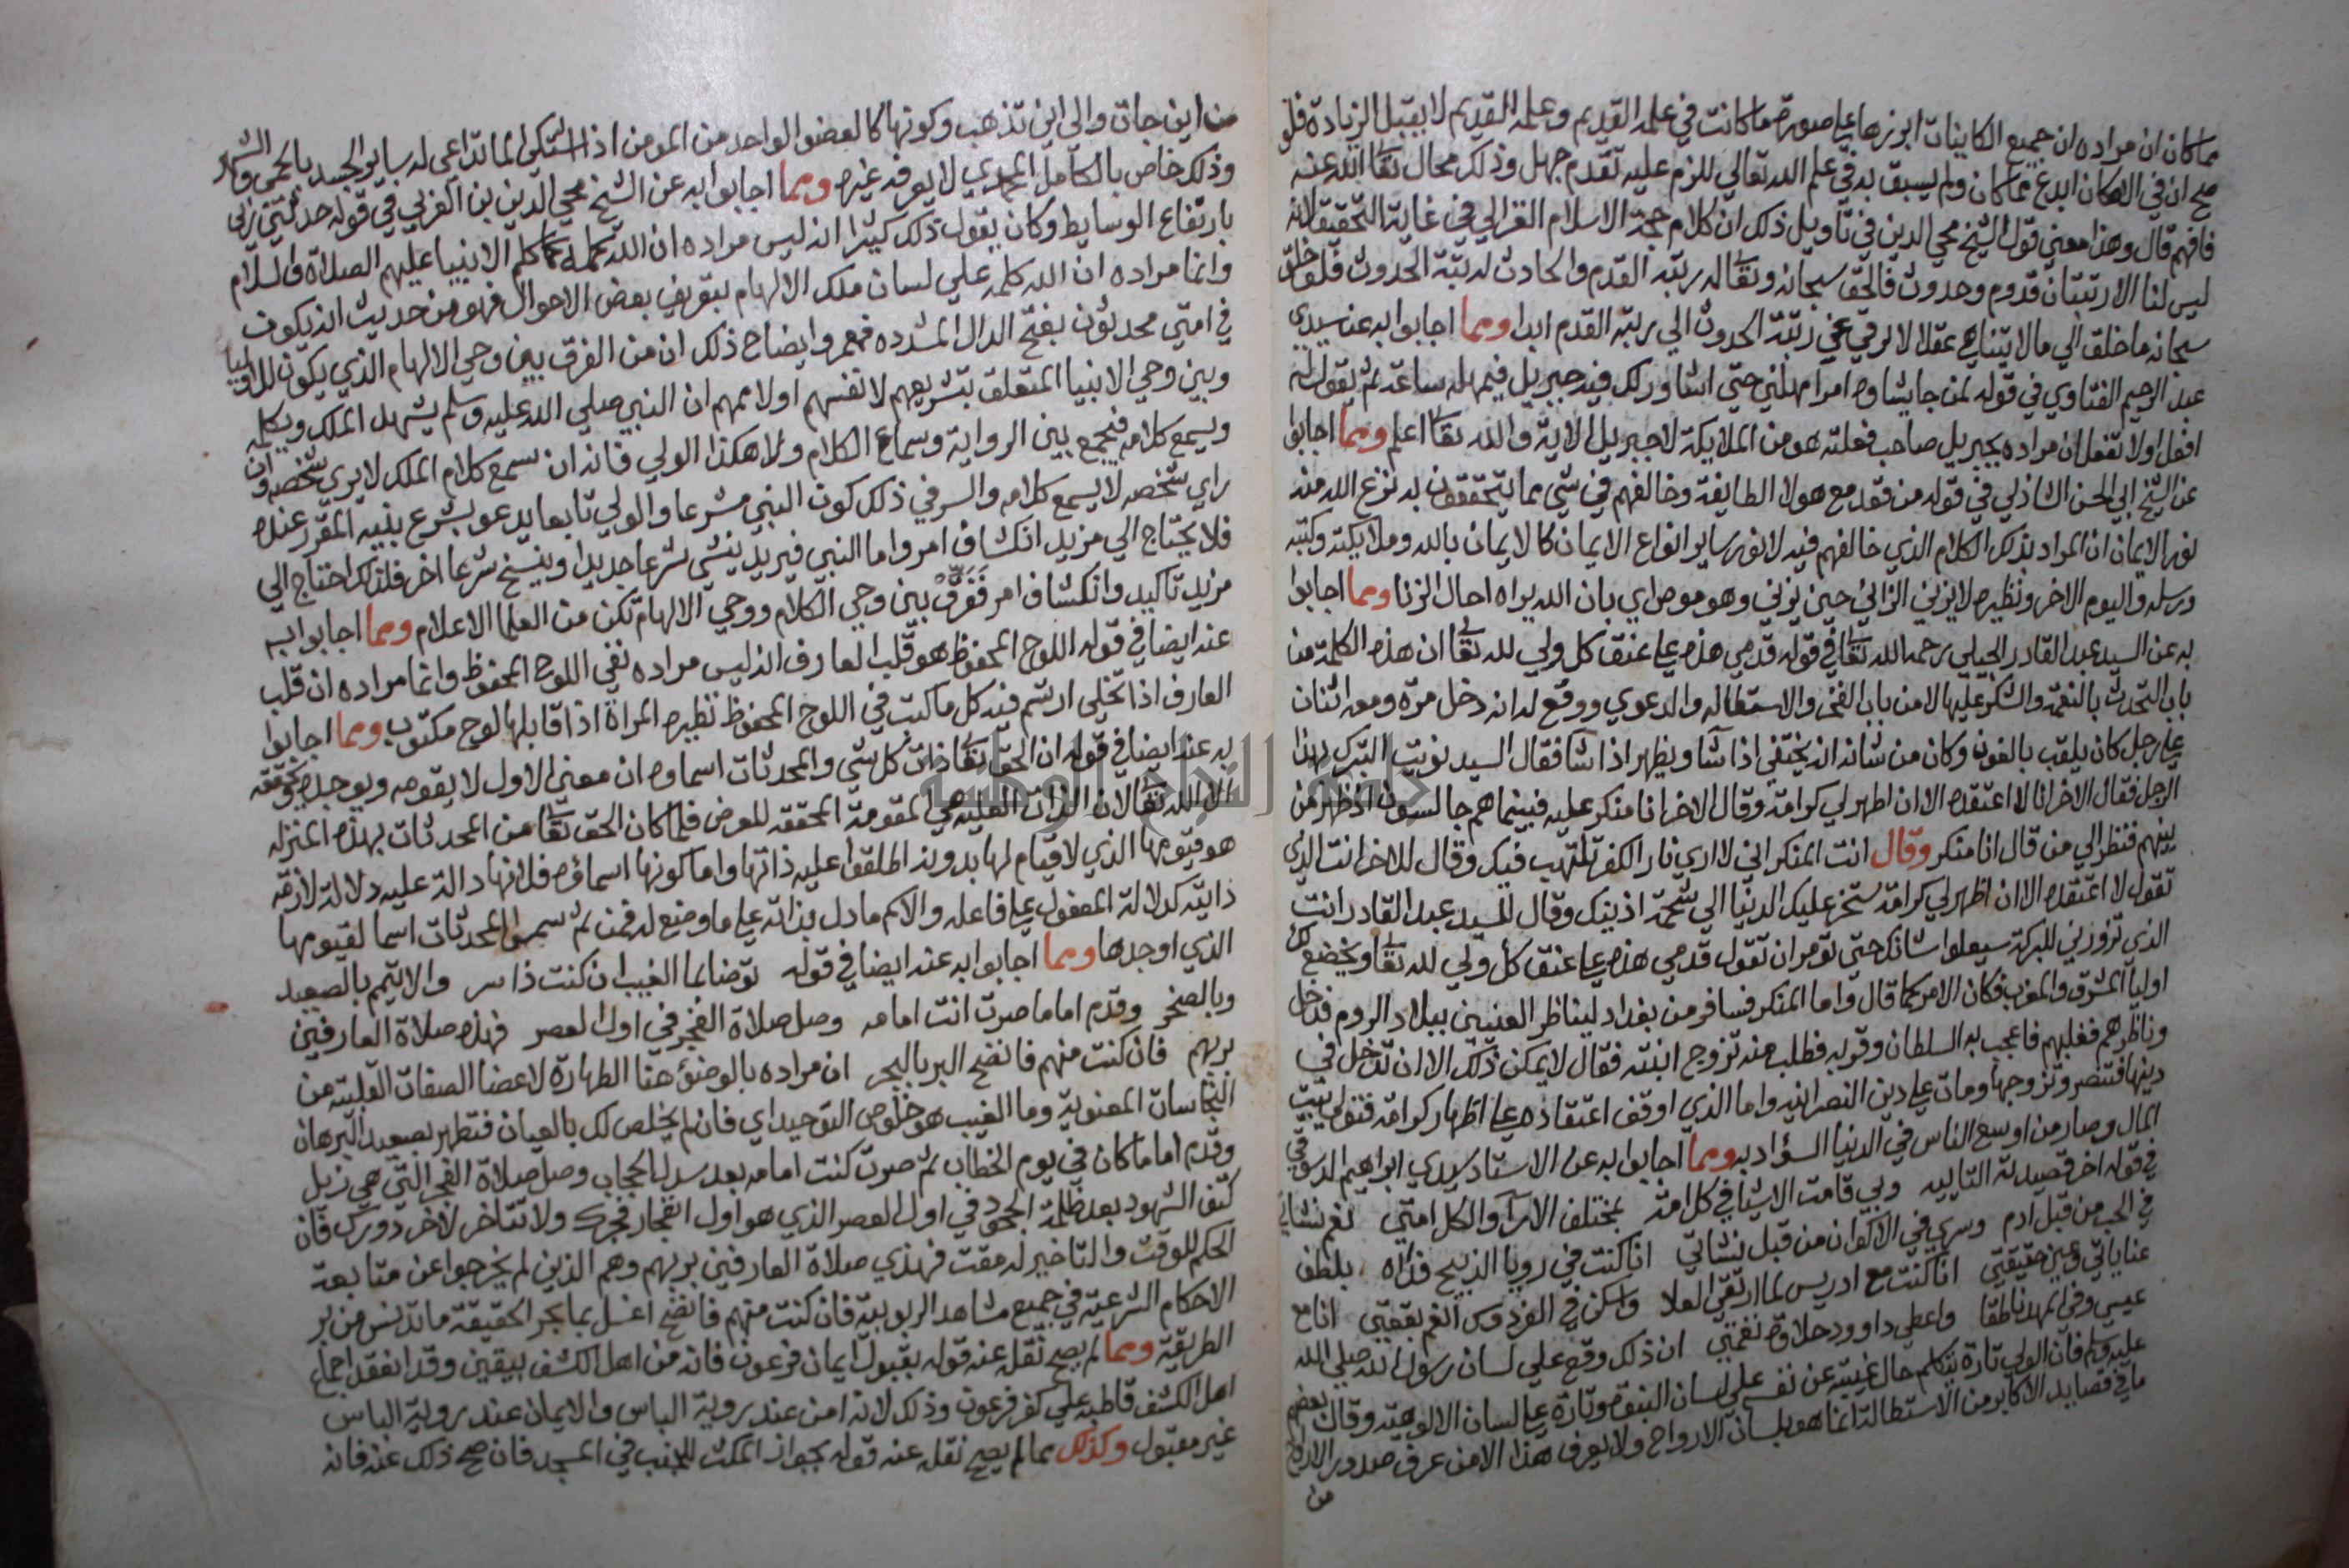 مما كان ان مراده ان جميع الكاينات ابرزها علي صورة ما كانت في علمه القديم وعلمه القديم لا يقبل الزيادة فلو
صح ان في الامكان ابدع مما كان ولم يسبق به في علم الله تعالي للزم عليه تقدم جهل وذلك محال تعا الله عنه
فافهم قال وهذا معني قول الشيخ محي الدين في تاويل ذلك ان كلام حجة الاسلام الغزالي في غاية التحقيق لانه
ليس لنا الا رتبتان قدوم وحدوث فالحق سبحانه وتعا له رتبة القدم والحادث له رتبة الحدوث فلو خلق
سبحانه ما خلق الي ما لا يتناهي عقلا لا يرقي عن رتبة الحدوث الي رتبة القدم ابدا ومما اجابوا به عن سيدي
عبد الرحيم القناوي في قوله لمن جا يشاوره امرا مهلني حتي اشاور لك فيه جبريل فيمهله ساعة ثم يقول له
افعل او لا تفعل ان مراده بجبريل صاحب فعلته هو من الملايكة لا جبريل الاية والله تعا اعلم ومما اجابوا
عن الشيخ ابي الحسن الشاذلي في قوله من قعد مع هولا الطايفة وخالفهم في شي مما يتحققون به نزع الله منه
نور الايمان ان المراد بذلك الكلام الذي خالفهم فيه لا نور ساير انواع الايمان كالايمان بالله وملايكته وكتبه
ورسله واليوم الاخر ونظيره لا يزني الزاني حين يزني وهو مومن اي بان الله يراه احال الزنا ومما اجابوا
به عن السيد عبد القادر الجيلي رحمه الله تعا في قوله قدمي هذه علي عنق كل ولي لله تعا ان هذه الكلمة من
باب التحدث بالنعمة والشكر عليها لا من باب الفخر والاستطاله والدعوي ووقع له انه دخل مرة ومعه اثنان
علي رجل كان يلقب بالغوث وكان من شانه ان يختفي اذا شا ويظهر اذا شا فقال السيد نويت التبرك بهذا
الرجل فقال الاخر انا لا اعتقده الا ان اظهر لي كرامة وقال الاخر انا منكر عليه فبينما هم جالسون اذ ظهر من
بينهم فنظر الي من قال انا منكر وقال انت المنكر اني لا اري نار الكفر تلتهب فيك وقال للاخر انت الذي
تقول لا اعتقده الا ان اظهر لي كرامة ستخر عليك الدنيا الي شحمة اذنيك وقال للسيد عبد القادر انت
الذي تزورني للبركة سيعلوا شانك حتي تومر ان تقول قدمي هذه علي عنق كل ولي لله تعا ويخضع لك
اوليا المشرق والمغرب فكان الامر كما قال واما المنكر فسافر من بغداد ليناظر القنيسين ببلاد الروم فدخل
وناظرهم فغلبهم فاعجب به السلطان وقربه فطلب منه تزوج ابنته فقال لا يمكن ذلك الا ان تدخل في
دينها فتنصر وتزوجها ومات علي دين النصرانيه واما الذي اوقف اعتقاده علي اظهار كرامة فتولي بيت
المال وصار من اوسع الناس في الدنيا السؤاد به ومما اجابوا به عن الاستاد سيدي ابراهيم الدسوقي
في قوله اخر قصيدته التاييه وبي قامت الاشيا في كل امة بمختلف الارآ والكل امتي نعم نشاتي
في الحب من قبل ادم وسري في الاكوان من قبل نشاتي انا كنت في رويا الذبيح فداه بلطف
عناياتي وعين حقيقتي انا كنت مع ادريس لما ارتقي العلا واسكن في الفردوس انعم بقعتي انا مع
عيسي وفي المهد ناطقا واعطي داوود حلاوة نغمتي ان ذلك وقع علي لسان رسول الله صلي الله
عليه وسلم فان الولي تارة يتكلم حال غيبته عن نفسه علي لسان النبوة وتارة علي لسان الالوهية وقال بعضهم
ما في قصايد الاكابر من الاستطالة انما هو بلسان الارواح ولا يعرف هذا الا من عرف صدور الارواح
من
من اين جات والي اين تذهب وكونها كالعضو الواحد من المومن اذا اشتكي الما تداعي له ساير الجسد بالحمي والسهر
وذلك خاص بالكامل المحمدي لا يعرفه غيره ومما اجابوا به عن الشيخ محي الدين بن العربي في قوله حدثني ربي
بارتفاع الوسايط وكان يقول ذلك كثيرا انه ليس مراده ان الله كلمه كما كلم الانبيا عليهم الصلاة والسلام
وانما مراده ان الله كلمه علي لسان ملك الالهام بتعريف بعض الاحوال فهو من حديث انه يكون
في امتي محدثون بفتح الدال المشدده فعمر وايضاح ذلك ان من الفرق بين وحي الالهام الذي يكون للاوليا
وبين وحي الانبيا المتعلق بتشريعهم لانفسهم او لاممهم ان النبي صلي الله عليه وسلم يشهد الملك ويكلمه
ويسمع كلامه فيجمع بين الرواية وسماع الكلام ولا هكذا الولي فانه ان سمع كلام الملك لا يري شخصه وان
راي شخصه لا يسمع كلامه والسر في ذلك كون النبي مشرعا والولي تابعا يدعو بشرع نبيه المقرر عنده
فلا يحتاج الي مزيد انكشاف امر واما النبي فيريد ينشي شرعا جديدا وينسخ شرعا اخر فلذلك احتاج الي
مزيد تاكيد وانكشاف امر ففرق بين وحي الكلام ووحي الالهام تكن من العلما الاعلام ومما اجابوا به
عنه ايضا في قوله اللوح المحفوظ هو قلب العارف انه ليس مراده نفي اللوح المحفوظ وانما مراده ان قلب
العارف اذا تجلي ارتسم فيه كل ما كتب في اللوح المحفوظ نظيره المراة اذا قابلها لوح مكتوب ومما اجابوا
به عنه ايضا في قوله ان الحق تعا ذات كل شي والمحدثات اسماوه ان معني الاول لا يقومه ويوجده ويحققه
الا الله تعا لان الذات العليه هي المقومة المحققه للعرض فلما كان الحق تعا من المحدثات بهذه المنزله
هو قيومها الذي لا قيام لها بدونه اطلقوا عليه ذاتها واما كونها اسماؤه فلانها دالة عليه دلالة لازمة
ذاتيه كدلالة المفعول علي فاعله والاسم ما دل بذاته علي ما وضع له فمن ثم سموا المحدثات اسما لقيومها
الذي اوجدها ومما اجابوا به عنه ايضا في قوله توضا بما الغيب ان كنت ذا سر والا تيمم بالصعيد
وبالصخر وقدم اماما صرت انت امامه وصل صلاة الفجر في اول العصر فهذه صلاة العارفين
بربهم فان كنت منهم فانضح البر بالبحر ان مراده بالوضؤ هنا الطهارة لاعضا الصفات القلبيه من
النجاسات المعنوية وما الغيب هو خلوص التوحيد اي فان لم يخلص لك بالعيان فتطهر بصعيد البرهان
وقدم اماما كان في يوم الخطاب ثم صرت كنت امامه بعد سدل الحجاب وصل صلاة الفجر التي هي نزيل
كنف الشهود بعد ظلمة الجحود في اول العصر الذي هو اول انفجار فجرك ولا تتاخر لاخر دورك فان
الحكم للوقت والتاخير له مقت فهذي صلاة العارفين بربهم وهم الذين لم يخرجوا عن متابعة
الاحكام الشرعية في جميع مشاهد الربوبية فان كنت منهم فانضح اغسل بما بحر الحقيقة ما تدنس من بر
الطريقة ومما لم يصح نقله عنه قوله بقبول ايمان فرعون فانه من اهل الكشف بيقين وقد انعقد اجماع
اهل الكشف قاطبه علي كفر فرعون وذلك لانه امن عند روية الباس والايمان عند روية الباس
غير مقبول وكذلك مما لم يصح نقله عنه قوله بجواز المكث للجنب في المسجد فان صح ذلك عنه فانه
جامعة النجاح الوطنية